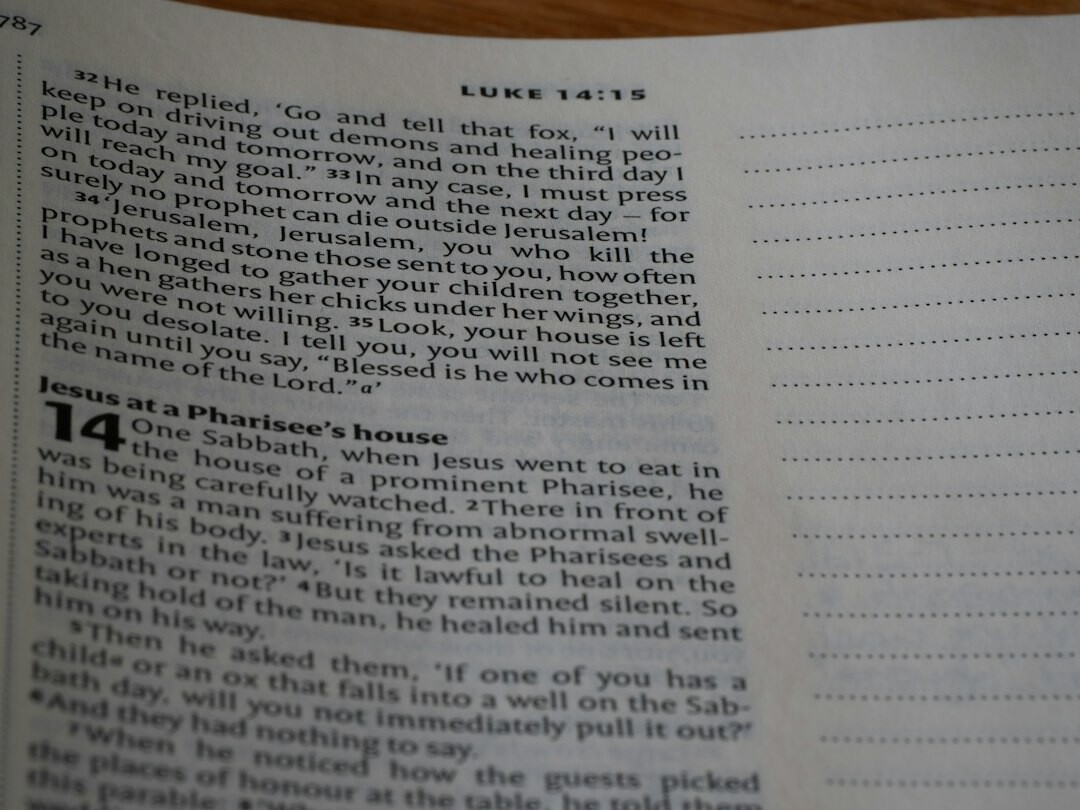 787
LUKE 14:15
32 He replied, ‘Go and tell that fox, “I will
keep on driving out demons and healing peo-
ple today and tomorrow, and on the third day I
will reach my goal.” 33 In any case, I must press
on today and tomorrow and the next day – for
surely no prophet can die outside Jerusalem!
34 ‘Jerusalem, Jerusalem, you who kill the
prophets and stone those sent to you, how often
I have longed to gather your children together,
as a hen gathers her chicks under her wings, and
you were not willing. 35 Look, your house is left
to you desolate. I tell you, you will not see me
again until you say, “Blessed is he who comes in
the name of the Lord.” a’
Jesus at a Pharisee’s house
14 One Sabbath, when Jesus went to eat in
the house of a prominent Pharisee, he
was being carefully watched. 2 There in front of
him was a man suffering from abnormal swell-
ing of his body. 3 Jesus asked the Pharisees and
experts in the law, ‘Is it lawful to heal on the
Sabbath or not?’ 4 But they remained silent. So
taking hold of the man, he healed him and sent
him on his way.
5 Then he asked them, ‘If one of you has a
child a or an ox that falls into a well on the Sab-
bath day, will you not immediately pull it out?’
6 And they had nothing to say.
7 When he noticed how the guests picked
the places of honour at the table, he told them
this parable: 8